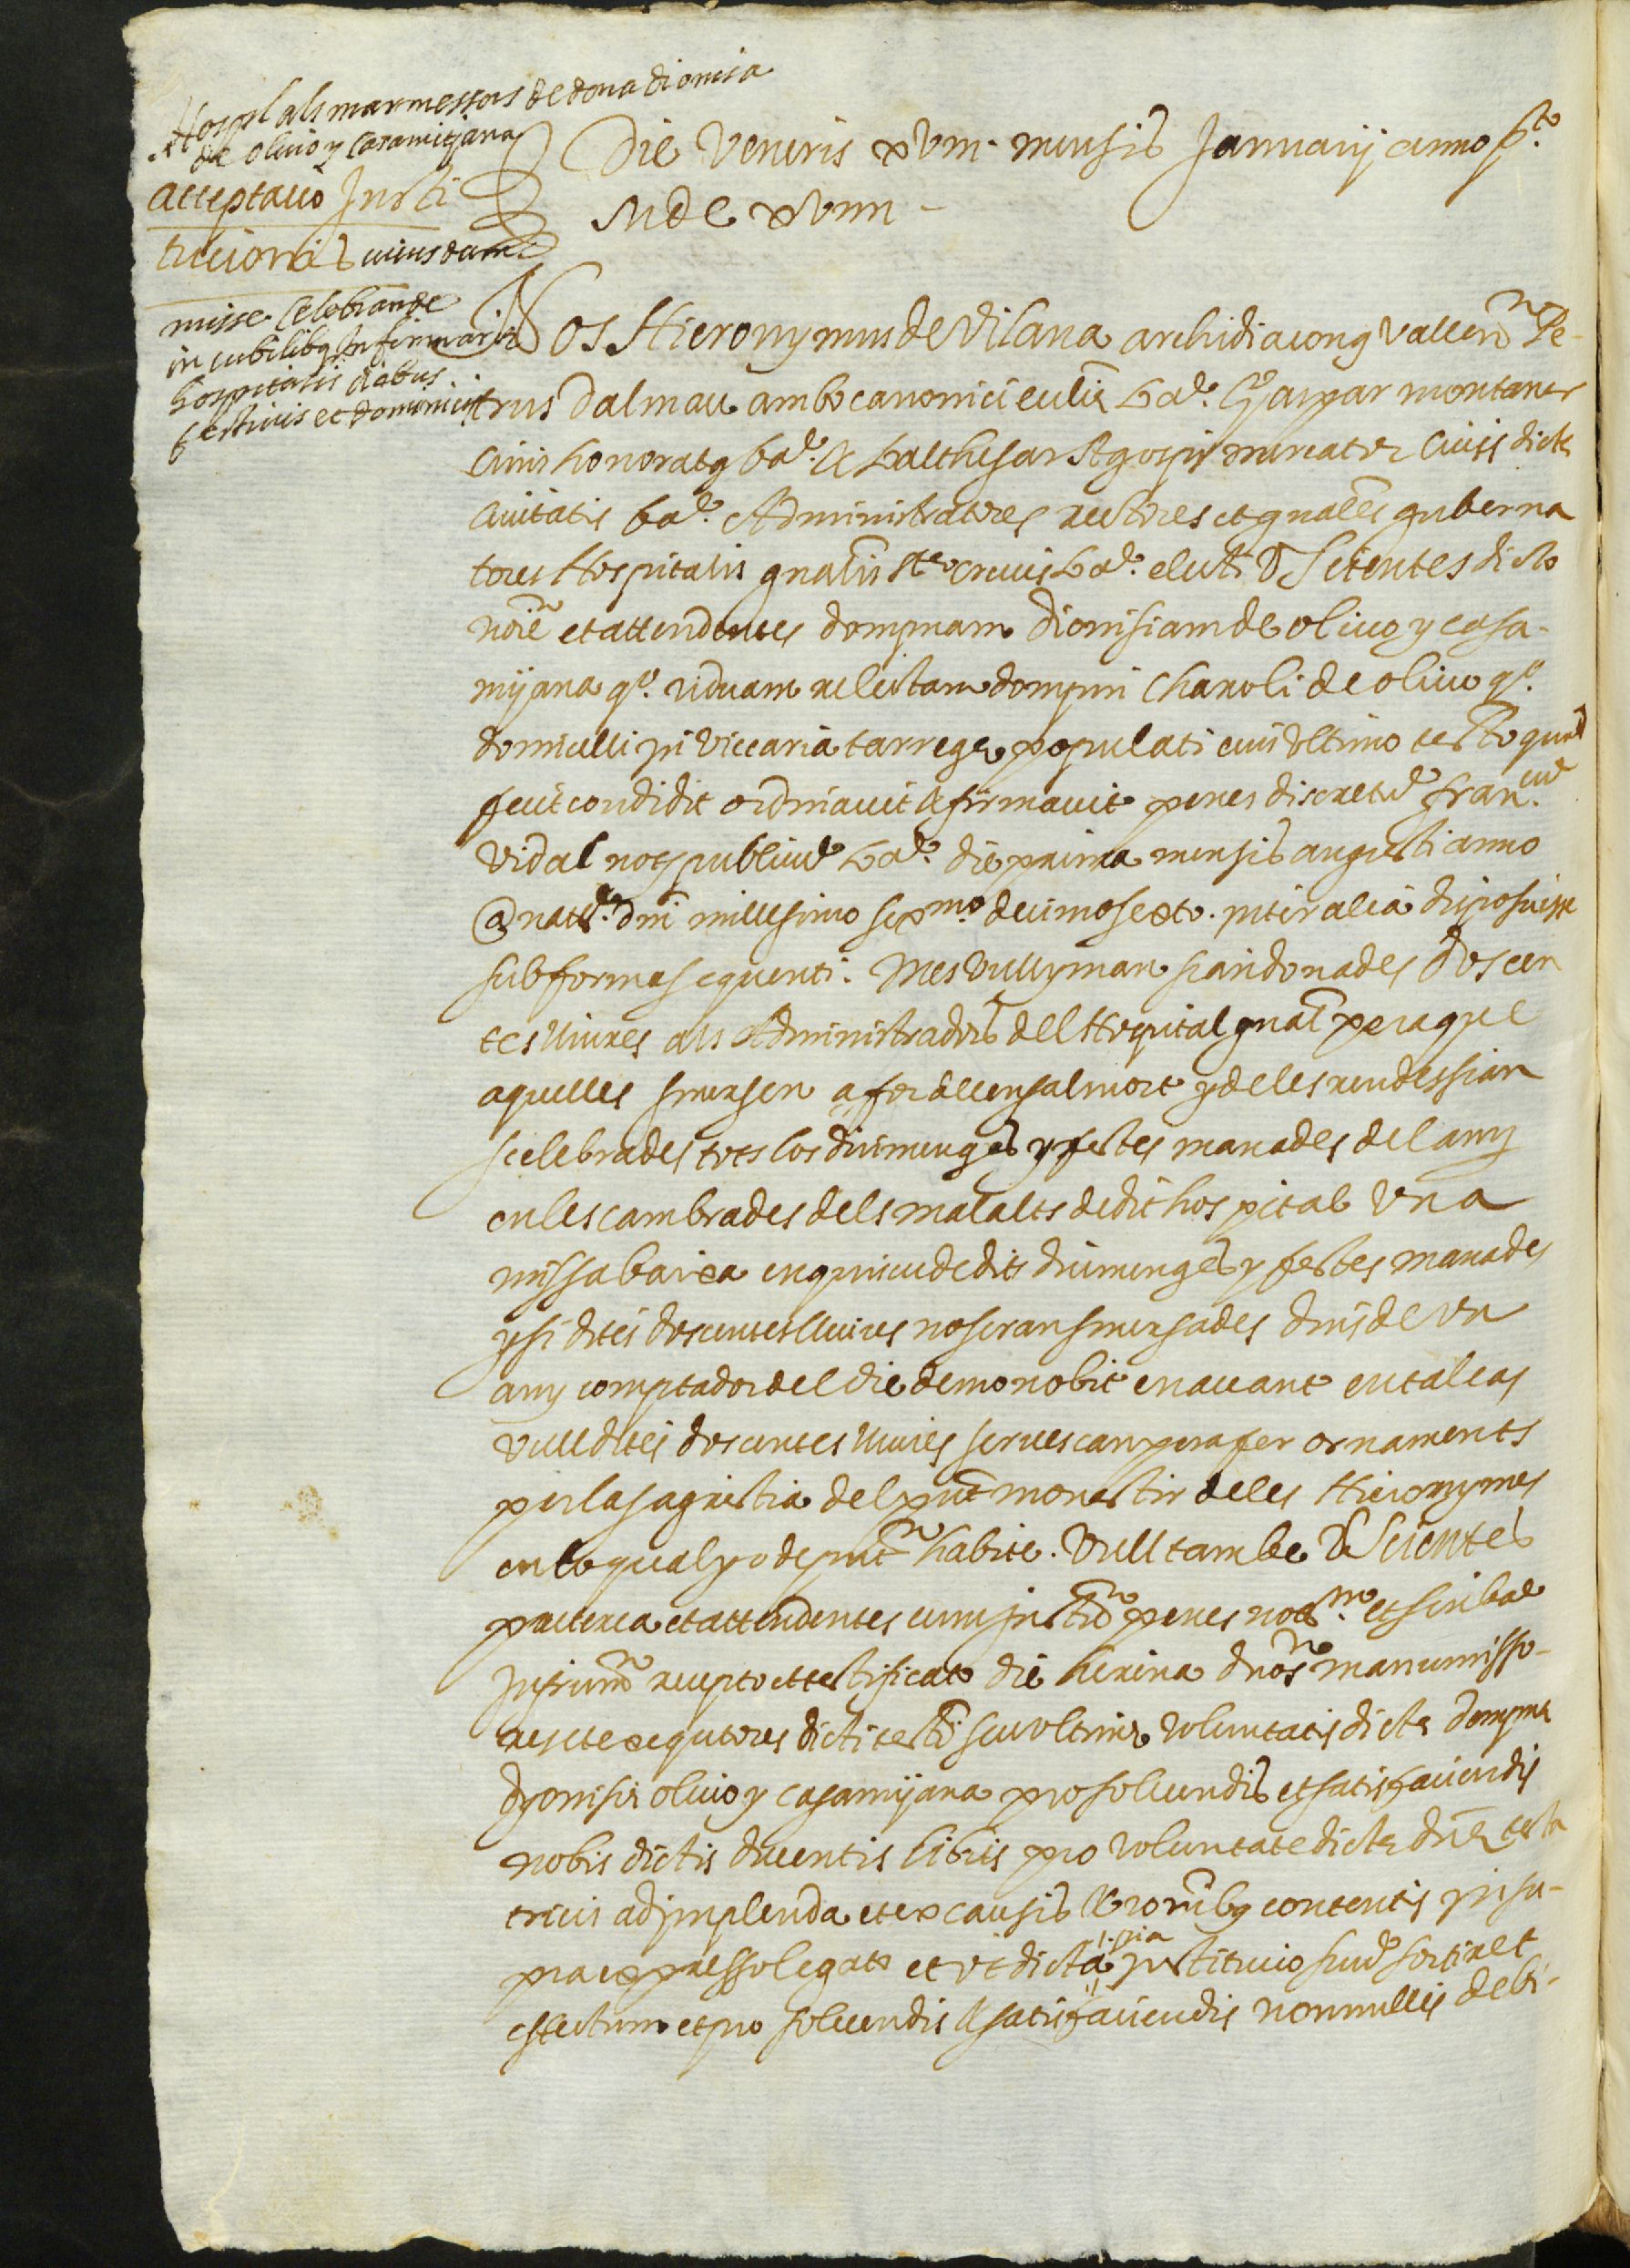 Hospl als marmessors de dona dionisa
de oliuo y Casamitjana
acceptatio Insti
tutionis cuiusdam
misse celebrande
in cubilibq Infirmaris
hospitalis diebus
festiuis et dominicis
Die Veneris xviii mensis Januarij anno pto
MDCxviiii
Nos Hieronymus de Vilana archidiaconq Vallen Pe-
trus dalmau ambo canonici ecclie bae. Gaspar montaner
Ciuis honoratq bae. & balthesar mercator Ciuis dicte
Ciuitatis bae. Administratores rectores et gnales guberna
tores Hospitalis gnalis ste crucis bae. electi & Scientes dicto
noie et attendentes dompnam dionisiam de oliuo y casa-
mijana qo. viduam relictam dompni Charoli de oliuo qo.
domicelli in Viccaria tarrege populati cum vltimo testo quod
fecit condidit ordinauit & firmauit penes discretu francu
Vidal not publicu bae. die prima mensis augusti anno
a natte. dni millesimo sexmo. decimosexto. inter alia disposuisse
sub forma sequenti. Mes vull y man sian donades doscen
tes lliures als Administradors del Hospital gnal pera que
aquelles smersen a for de censal mort y de les rendes sian
celebrades tots los diumenges y festes manades del any
en les cambrades dels malalts de dit hospital Vna
missa baixa en quiscu de dits diumenges y festes manades
y si dites doscentes lliures no seran smersades dins de vn
any comptador del die de mon obit enauant en tal cas
vull dites doscentes lliures seruescan pera fer ornaments
per la sagristia del pnt monestir de les Hieronymes
en lo qual yo de pnt habite. Vull tambe & Scientes
preterea et attendentes cum Instro penes notm et scriba
Infrum recepto et testificato die herina dnos manumisso-
res et exequtores dicti testi seu vltime voluntatis dicte dompne
dyonisie oliuo y casamijana pro soluendis et satisfaciendis
nobis dictis ducentis libris pro voluntate dicte dne testa
tricis adimplenda et ex causis & ronibq contentis in su-
pra expresso legato et vt dicta pia institutio suu sortiret
effectum et pro soluendis & satisfaciendis nonnullis debi-